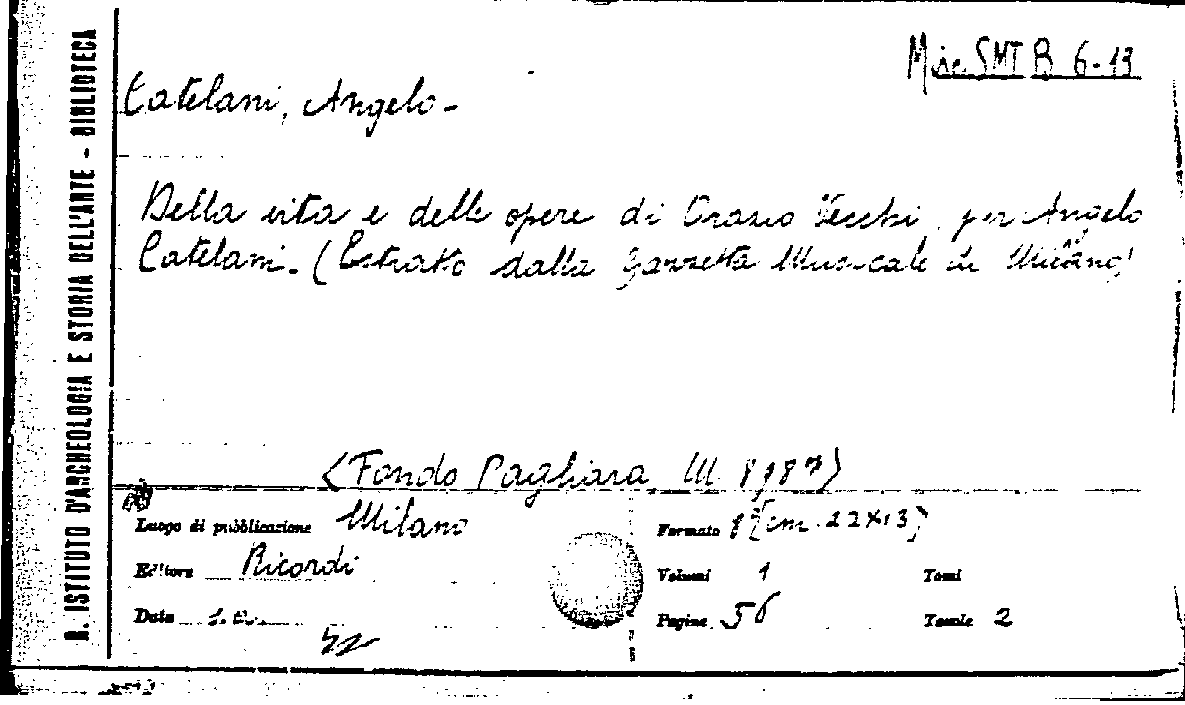 Misc. SMT B 6-13
Catelani, Angelo-
Della vita e delle opere di Orazio Vecchi, per Angelo
Catelani. (Estratto dalla Gazzetta Musicale di Milano)
(Fondo Pagliara, M 8987)
Luogo di pubblicazione Milano
Editore Ricordi
Data s.a.
Formato 8°[cm. 22x13]
Volumi 1
Tomi
Pagine 56
Tavole 2
R. ISTITUTO D'ARCHEOLOGIA E STORIA DELL'ARTE - BIBLIOTECA